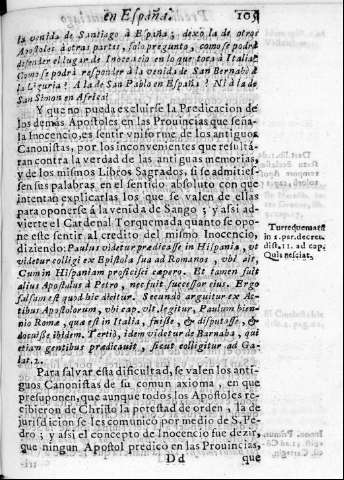 en España. 105
la venida de Santiago à España; dexo la de otros
Apostoles à otras partes, solo pregunto, como se podrà
defender el lugar de Inocencio en lo que toca à Italia?
Como se podrà responder à la venida de San Bernabè à
la Liguria? A la de San Pablo en España? Ni à la de
San Simon en Africa?
Y que no pueda excluirse la Predicacion de
los demàs Apostoles en las Prouincias que seña-
la Inocencio, es sentir vniforme de los antiguos
Canonistas, por los inconvenientes que resultà-
ran contra la verdad de las antiguas memorias,
y de los mismos Libros Sagrados, si se admities-
sen sus palabras en el sentido absoluto con que
intentan explicarlas los que se valen de ellas
para oponerse à la venida de Sango; y assi ad-
vierte el Cardenal Torquemada quanto se opo-
ne este sentir al credito del mismo Inocencio,
diziendo: Paulus videtur prædicasse in Hispania, vt
videtur colligi ex Epistola sua ad Romanos, vbi ait,
Cum in Hispaniam proficisci cœpero. Et tamen fuit
alius Apostolus à Petro, nec fuit successor eius. Ergo
falsum est quod hic dicitur. Secundo arguitur ex Ac-
tibus Apostolorum, vbi cap. vlt. legitur, Paulum bien-
nio Roma, qua est in Italia, fuisse, & disputasse, &
docuisse ibidem. Tertiò, idem videtur de Barnaba, qui
etiam gentibus predicauit, sicut colligitur ad Ga-
lat. 2.
Para salvar esta dificultad, se valen los anti-
guos Canonistas de su comun axioma, en que
presuponen, que aunque todos los Apostoles re-
cibieron de Christo la potestad de orden, la de
jurisdicion se les comunicò por medio de S. Pe-
dro; y assi el concepto de Inocencio fue dezir,
que ningun Apostol predicò en las Prouincias,
Dd que
Turrequemata
in 1. par. decret.
dist. 11. ad cap.
Quis nesciat.